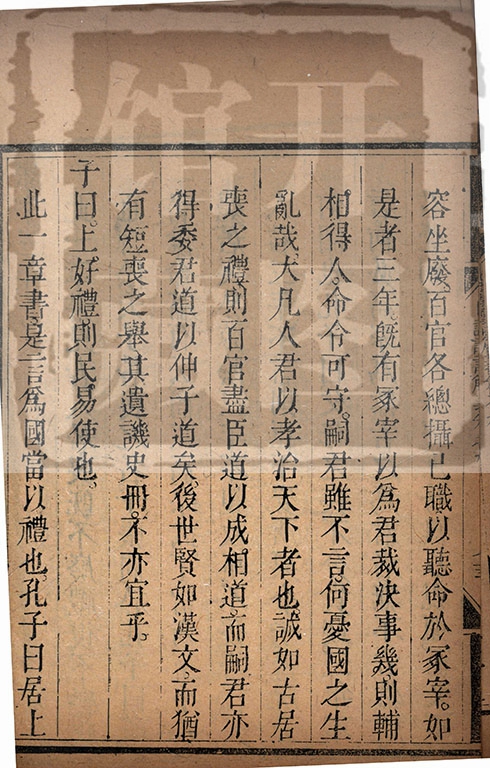 容坐廢百官各總攝已職以聽命於冢宰。如
是者三年。既有冢宰以爲君裁决事幾。則輔
相得人。命令可守。嗣君雖不言。何憂國之生
亂哉。大凡人君以孝治天下者也誠如古居
喪之禮則百官盡臣道以成相道。而嗣君亦
得委君道以伸子道矣。後世賢如漢文而猶
有短喪之舉其遺譏史冊。不亦宜乎。
子曰。上。好禮則民易使也。
此一章書。是言爲國當以禮也。孔子曰居上